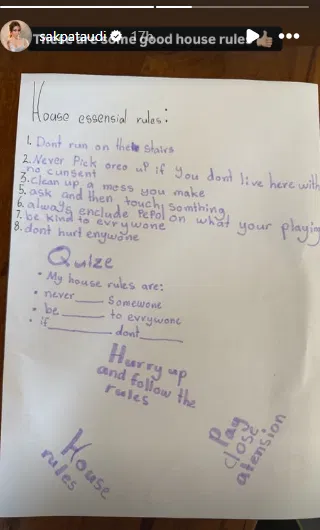 sakpataudi 17h
These are some good house rules
House essensial rules:
1. Dont run on the stairs
2. Never Pick oreo up if you dont live here with
no cunsent
3. clean up a mess you make
5. ask and then touch somthing
6. always enclude PePol on what your playing
7. be kind to evrywone
8. dont hurt enywone
Quize
• My house rules are:
• never____ somewone
• be____ to evrywone
• if____ dont____
Hurry up
and follow the
rules
House
rules
Pay
close
atension